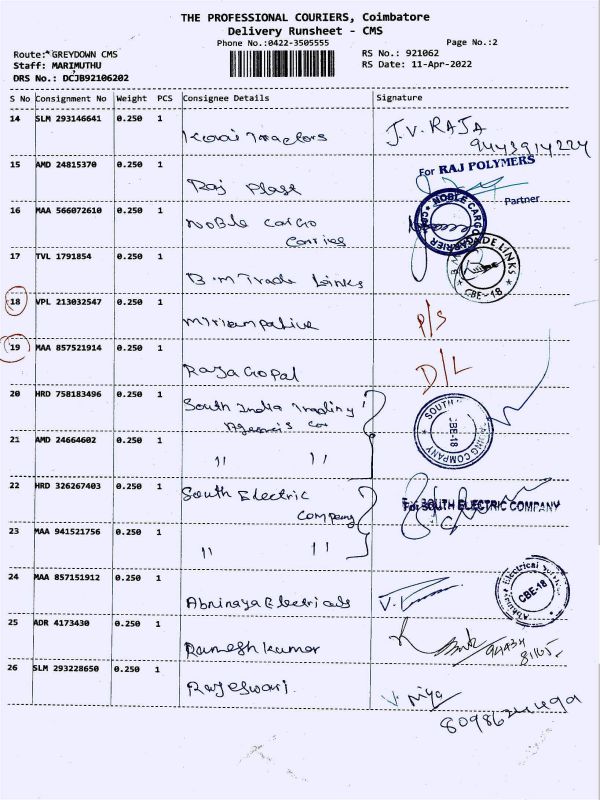 THE PROFESSIONAL COURIERS, Coimbatore
Delivery Runsheet - CMS
Phone No.:0422-3505555
Page No.:2
Route: GREYDOWN CMS
Staff: MARIMUTHU
DRS No.: DCJB92106202
RS No.: 921062
RS Date: 11-Apr-2022
S No Consignment No Weight PCS Consignee Details Signature
14 SLM 293146641 0.250 1 J.V. RAJA
15 AMD 24815370 0.250 1 Raj
For RAJ POLYMERS
Partner
16 MAA 566072610 0.250 1 Noble Cargo
Carries
NOBLE CARGO CARRIER CBE
17 TVL 1791854 0.250 1 B.M Trade Links
TRADE LINKS CBE-18
18 VPL 213032547 0.250 1 P/S
19 MAA 857521914 0.250 1 Raja Gopal D/L
20 HRD 758183496 0.250 1 South India Trading
Agencis Co
SOUTH CBE-18 COMPANY
21 AMD 24664602 0.250 1 " "
22 HRD 326267403 0.250 1 South Electric
Company
For SOUTH ELECTRIC COMPANY
23 MAA 941521756 0.250 1 " "
24 MAA 857151912 0.250 1 Abninaya Electricals
Abhinaya Electrical CBE-18
25 ADR 4173430 0.250 1 Ramesh Kumar
26 SLM 293228650 0.250 1 Rajeswari. V. Priya